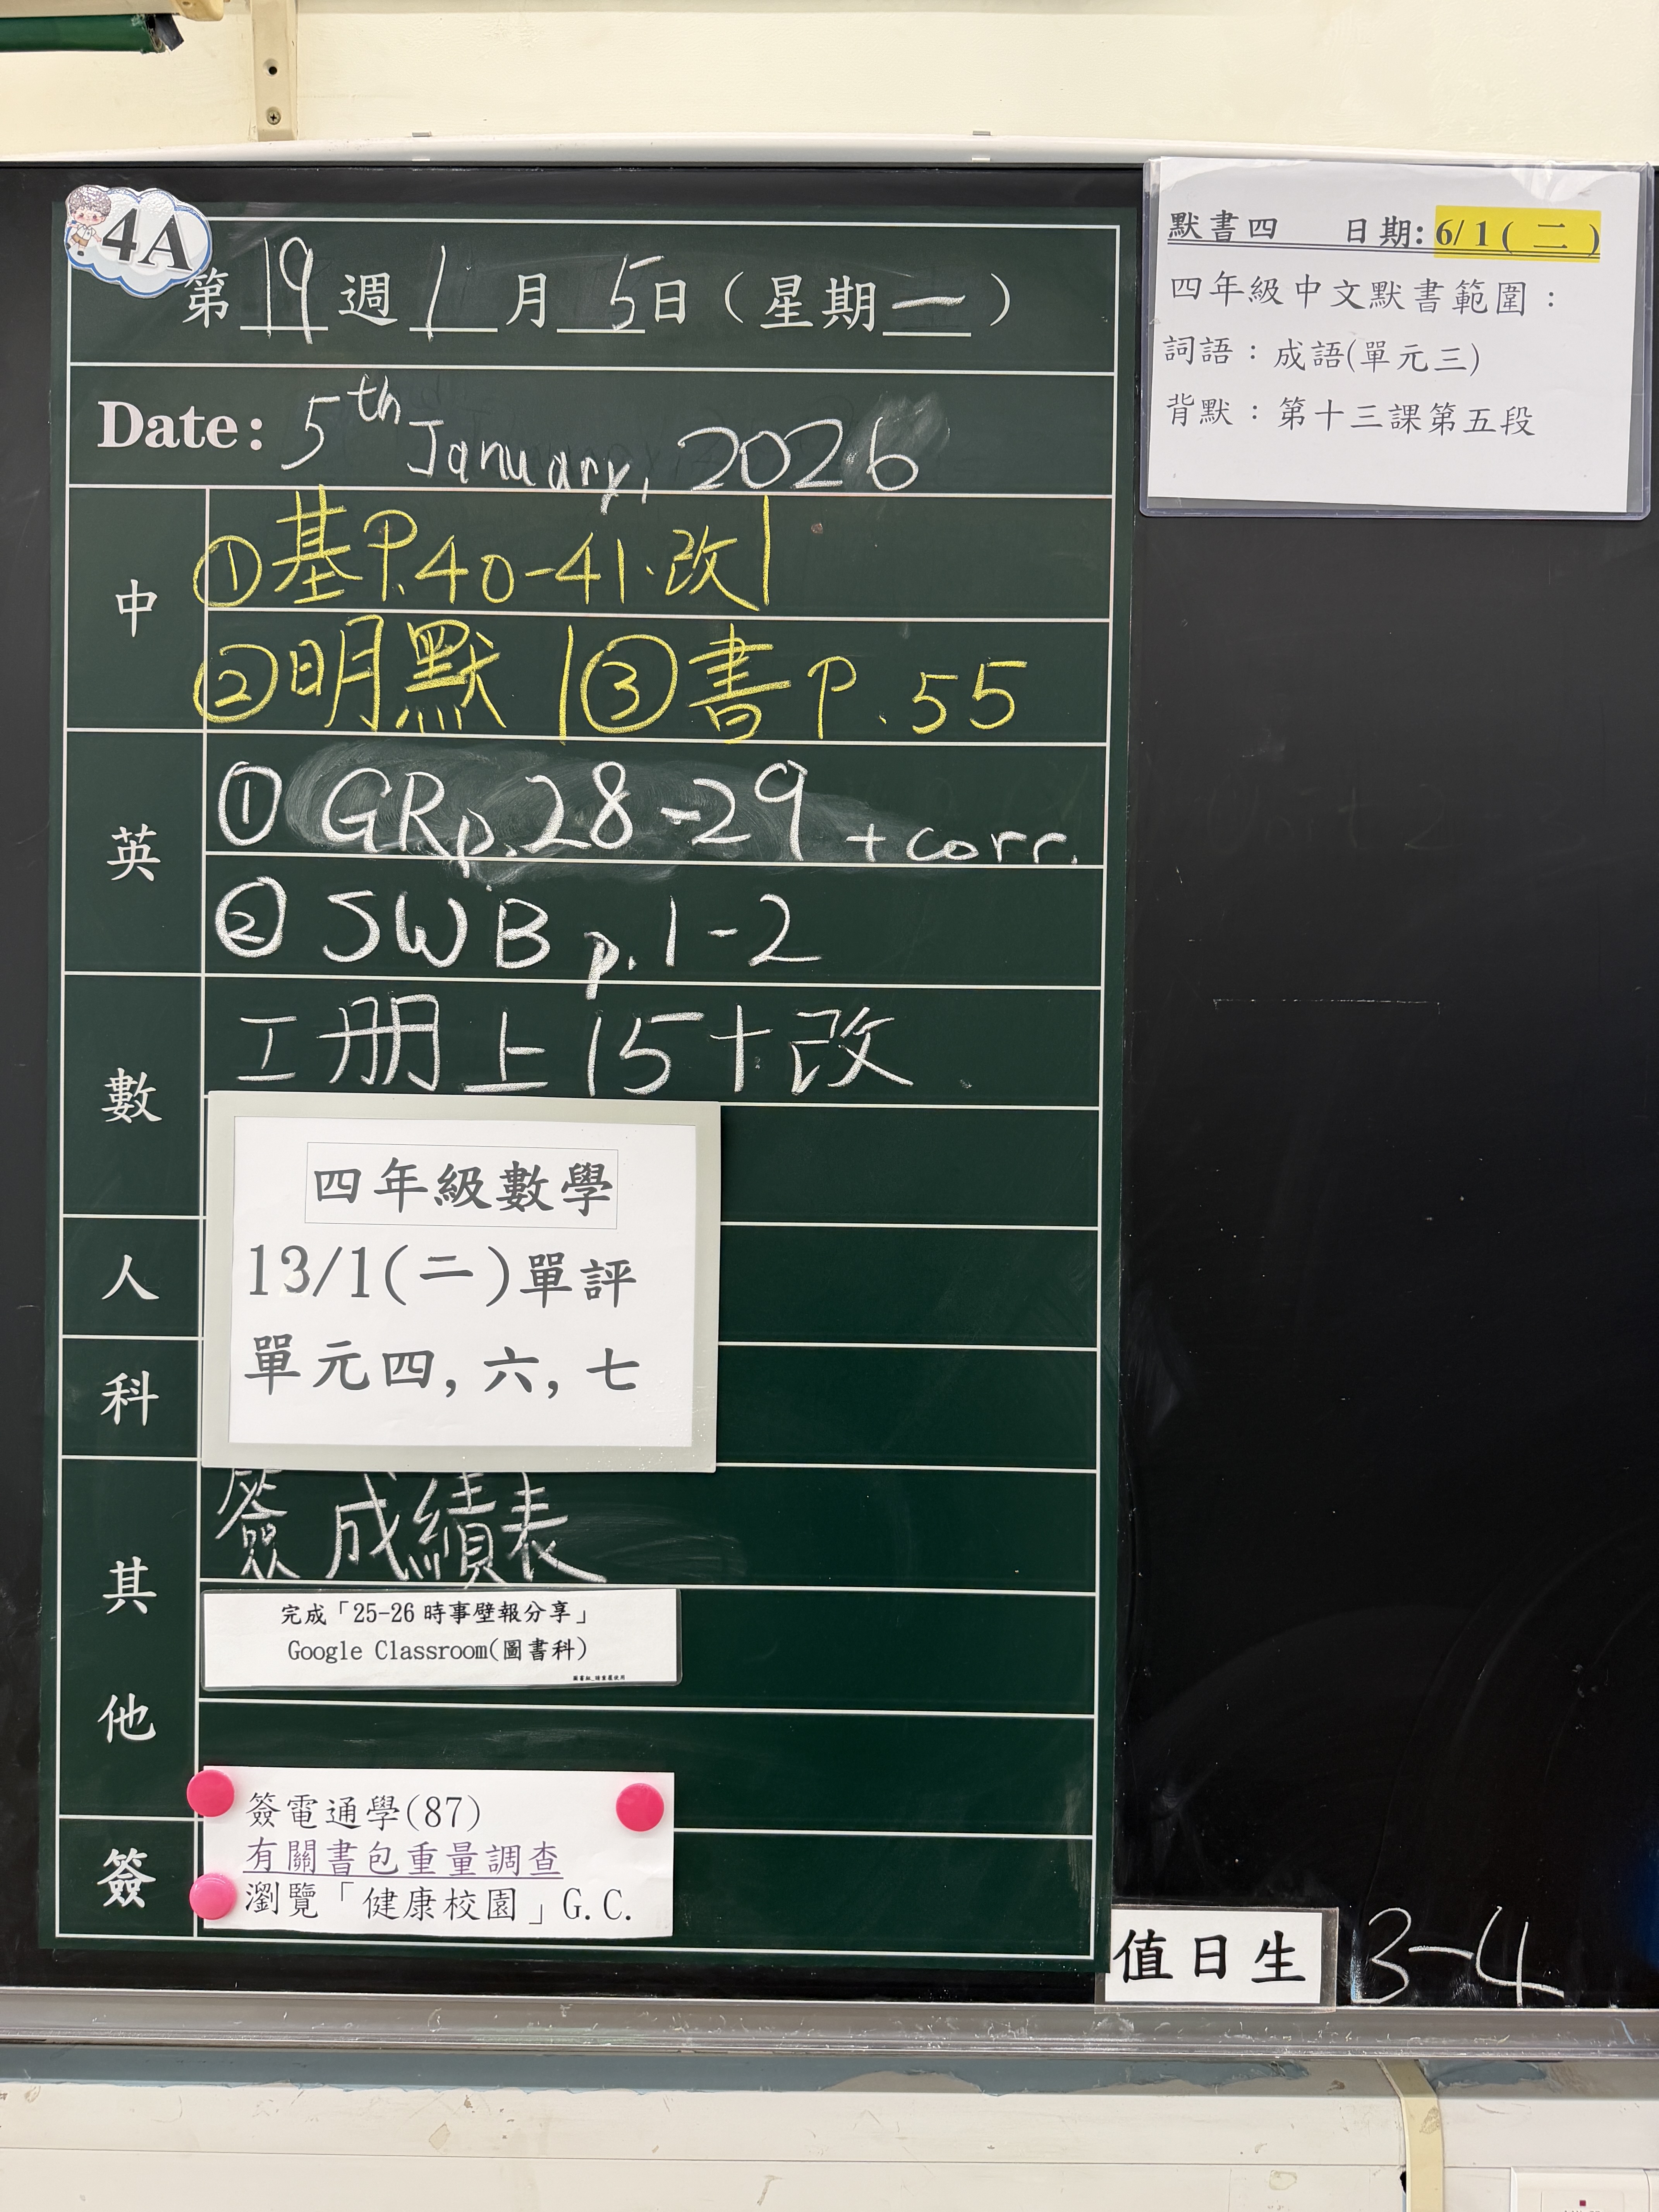 4A
第 19 週 1 月 5 日（星期 一 ）
Date: 5th January, 2026
中
①基P.40-41.改|
②明默 |③書P.55
英
① GR p.28-29 + corr.
② SWB p.1-2
數
工册上15+改
四年級數學
13/1(二)單評
單元四, 六, 七
人
科
其他
簽 成績表
完成「25-26 時事壁報分享」
Google Classroom(圖書科)
簽
簽電通學(87)
有關書包重量調查
瀏覽「健康校園」G.C.
默書四 日期: 6/1 ( 二 )
四年級中文默書範圍：
詞語：成語(單元三)
背默：第十三課第五段
值日生 3-4